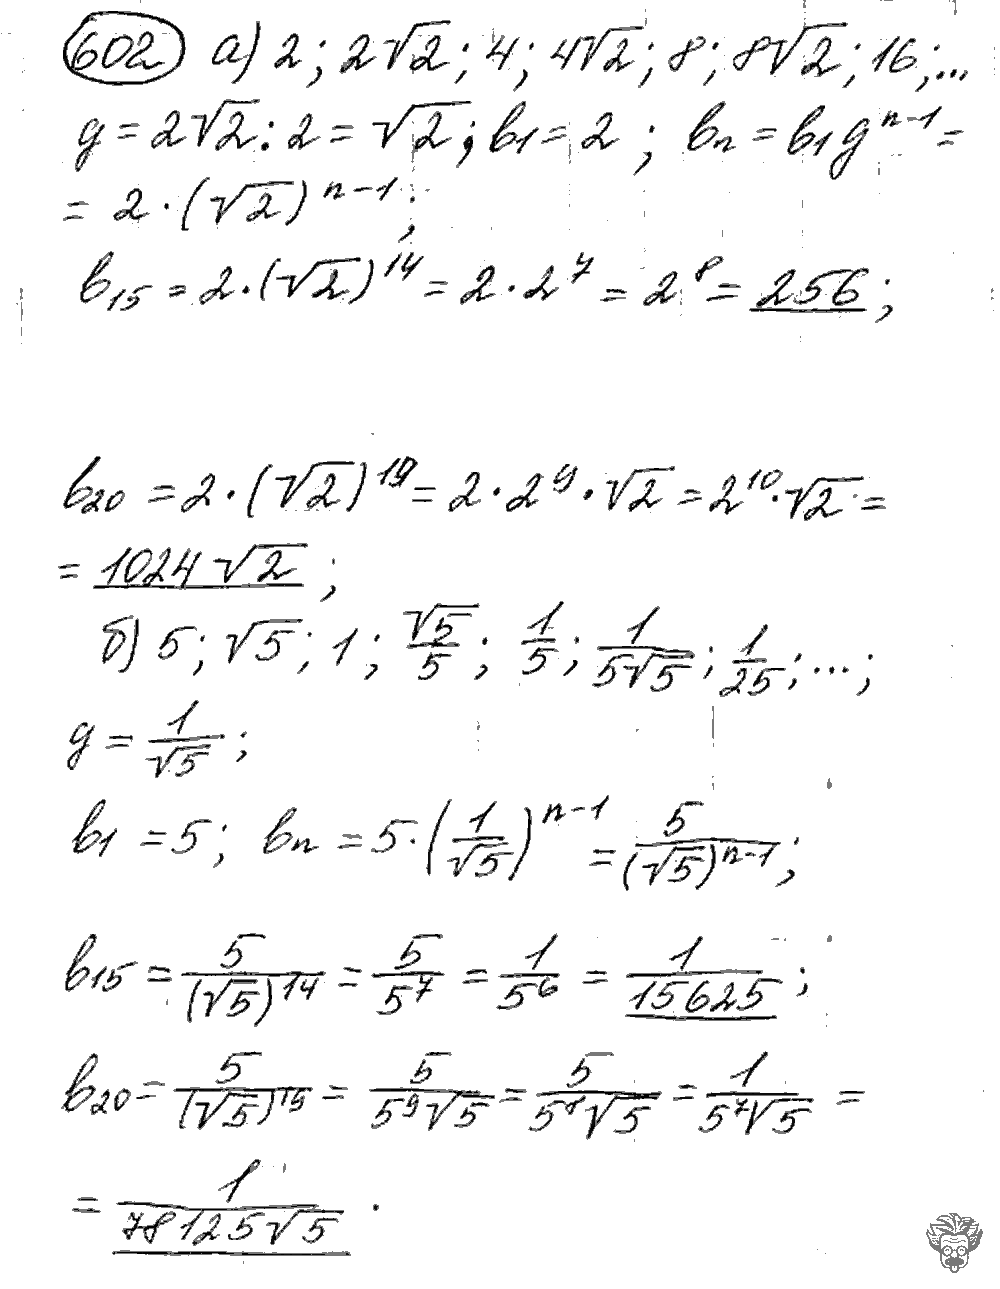 602 а) 2; 2√2; 4; 4√2; 8; 8√2; 16;...
q = 2√2 : 2 = √2; b₁ = 2; bₙ = b₁qⁿ⁻¹ =
= 2·(√2)ⁿ⁻¹;
b₁₅ = 2·(√2)¹⁴ = 2·2⁷ = 2⁸ = 256;
b₂₀ = 2·(√2)¹⁹ = 2·2⁹·√2 = 2¹⁰·√2 =
= 1024√2;
б) 5; √5; 1; √5/5; 1/5; 1/(5√5); 1/25; ...;
q = 1/√5;
b₁ = 5; bₙ = 5·(1/√5)ⁿ⁻¹ = 5/(√5)ⁿ⁻¹;
b₁₅ = 5/(√5)¹⁴ = 5/5⁷ = 1/5⁶ = 1/15625;
b₂₀ = 5/(√5)¹⁹ = 5/(5⁹√5) = 5/(5⁸√5) = 1/(5⁷√5) =
= 1/(78125√5).